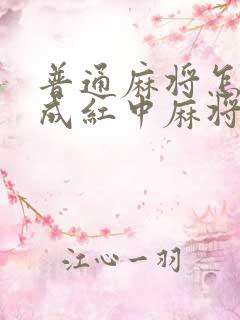 普通麻将怎
成红中麻将
江心一羽